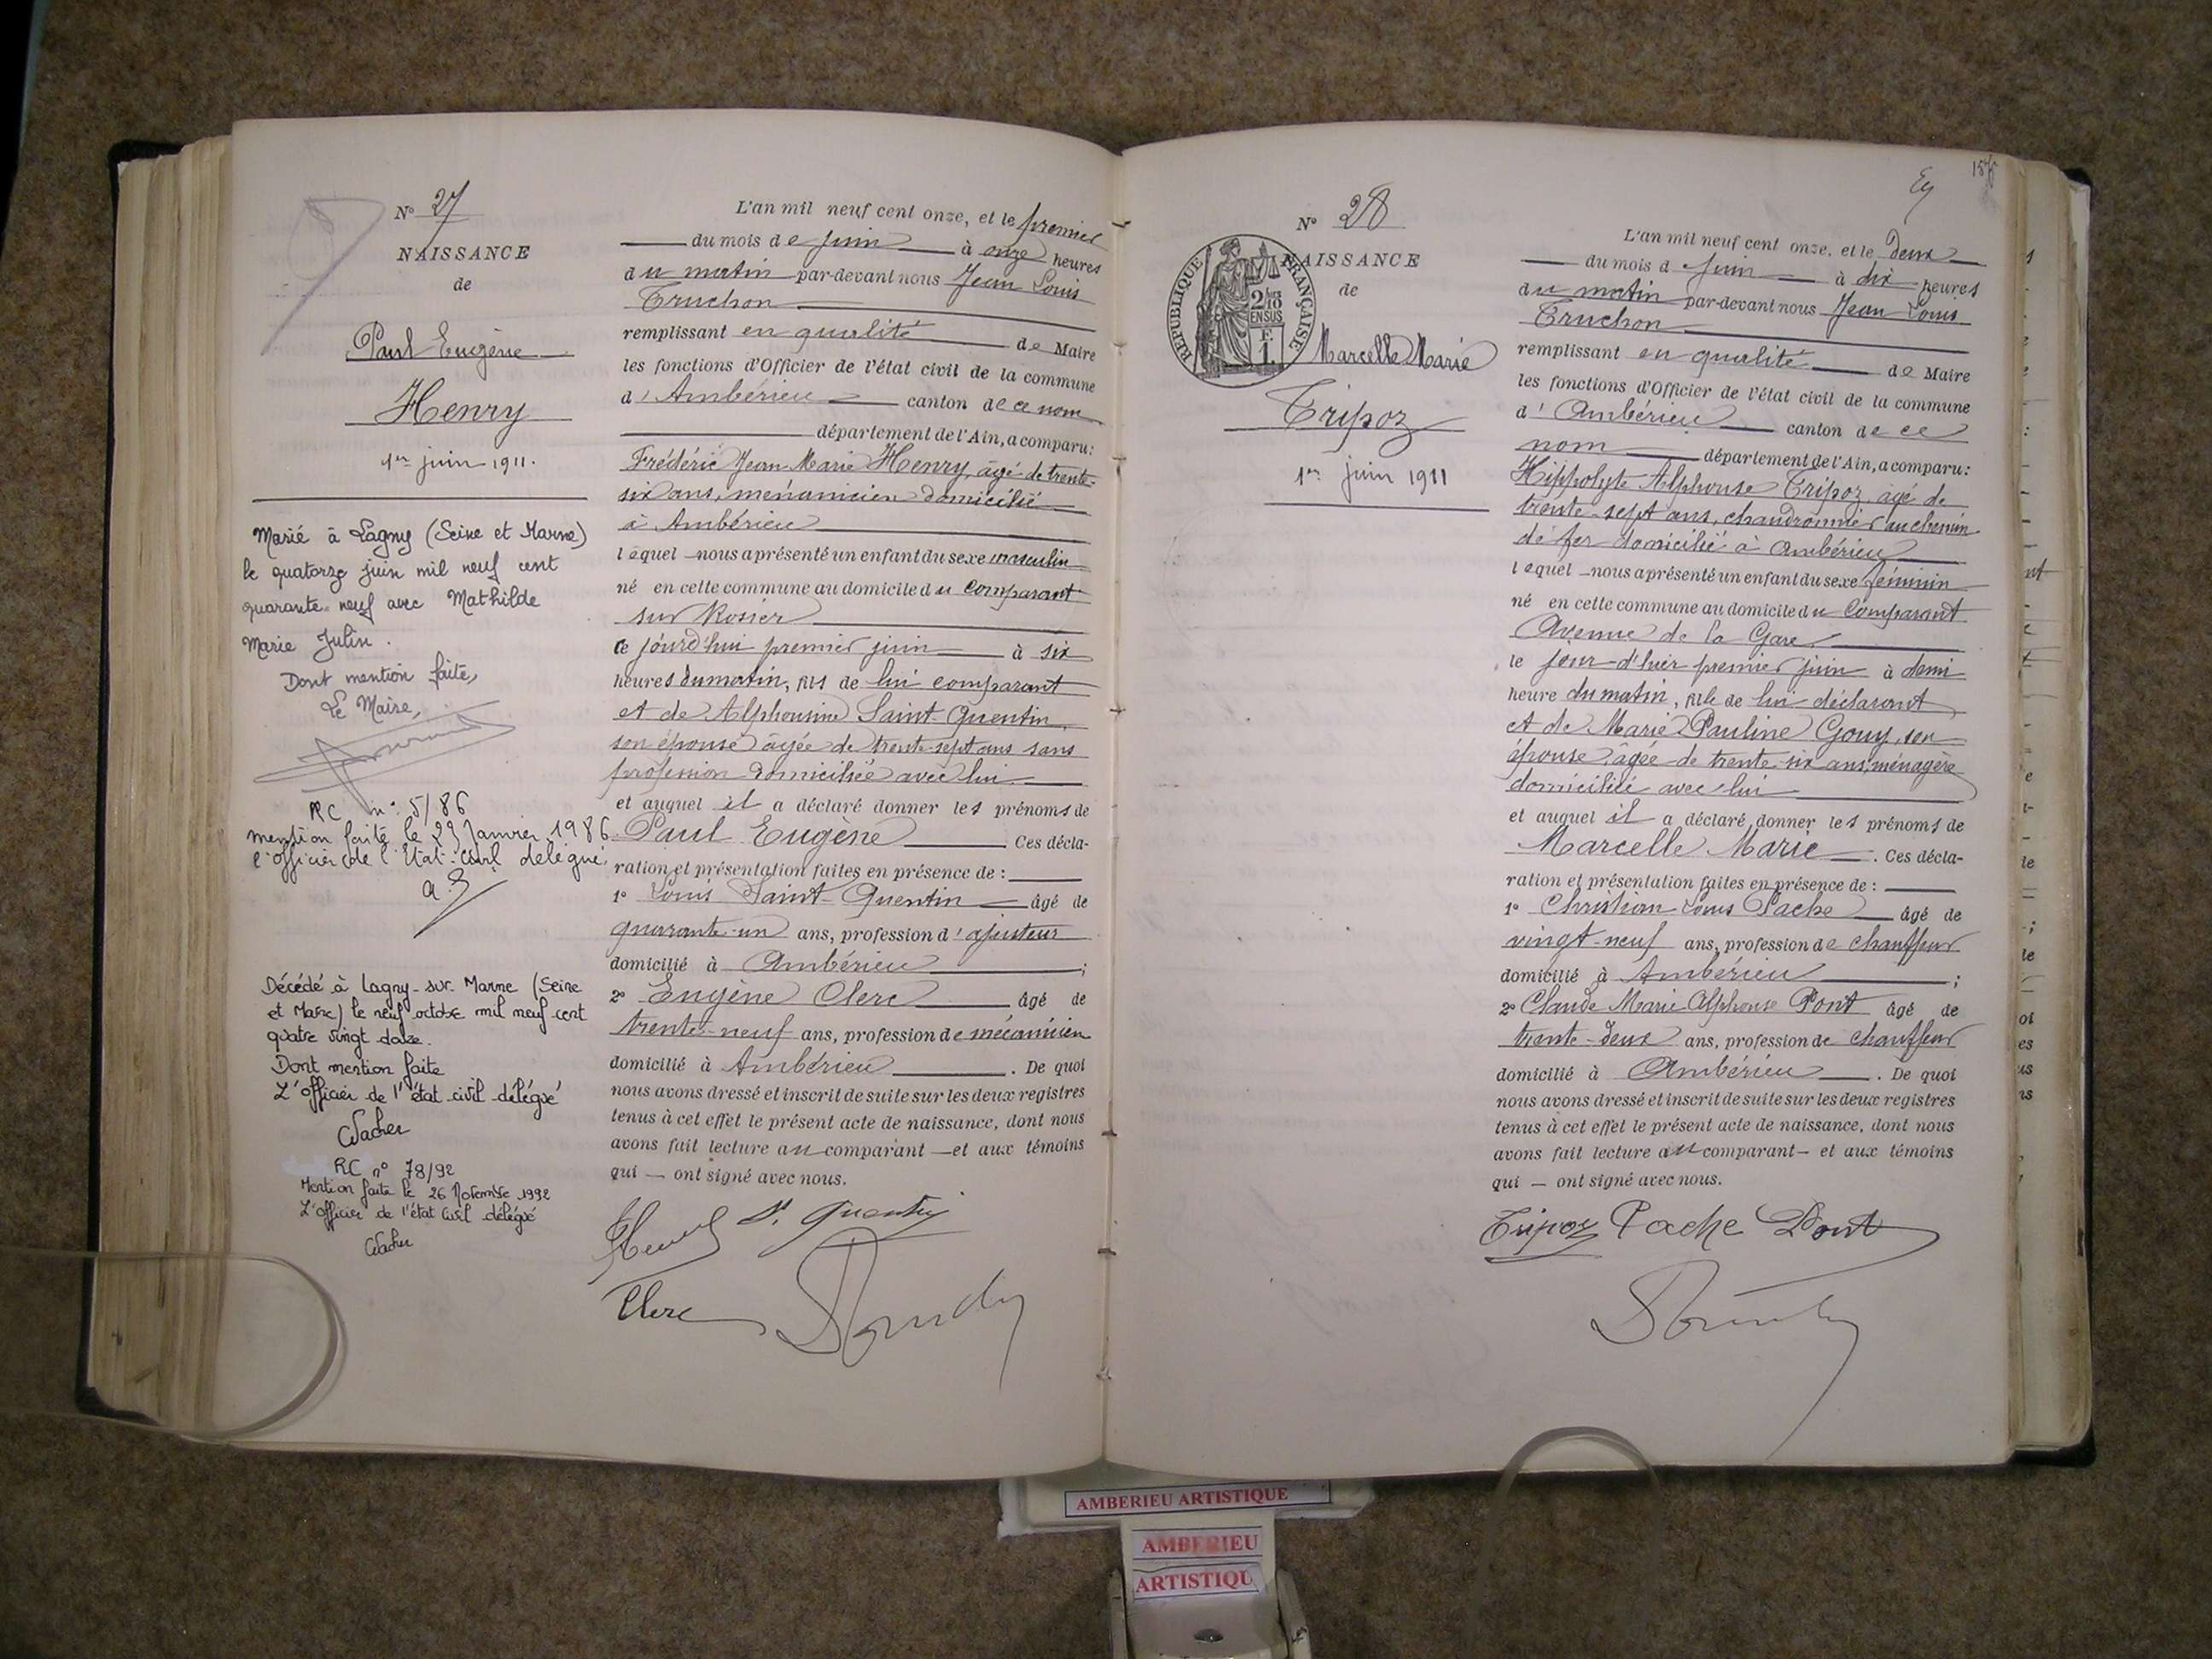 N° 27
NAISSANCE
de
Paul Eugène
Henry
1er juin 1911.
Marié à Lagny (Seine et Marne)
le quatorze juin mil neuf cent
quarante-neuf avec Mathilde
Marie Julin.
Dont mention faite,
Le Maire,
RC n° 5/86
mention faite le 29 Janvier 1986
l'officier de l'Etat-Civil délégué
Décédé à Lagny-sur-Marne (Seine
et Marne) le neuf octobre mil neuf cent
quatre vingt douze.
Dont mention faite
L'officier de l'état civil délégué
RC n° 78/92
Mention faite le 26 Novembre 1992
L'officier de l'état civil délégué
L'an mil neuf cent onze, et le premier
du mois de juin à onze heures
du matin par-devant nous Jean Louis
Truchon
remplissant en qualité de Maire
les fonctions d'Officier de l'état civil de la commune
d'Ambérieu canton de ce nom
département de l'Ain, a comparu:
Frédéric Jean Marie Henry, âgé de trente-
six ans, mécanicien domicilié
à Ambérieu
lequel nous a présenté un enfant du sexe masculin
né en cette commune au domicile du comparant
sur Rosier
ce jourd'hui premier juin à six
heures du matin, fils de lui comparant
et de Alphonsine Saint-Quentin,
son épouse âgée de trente-sept ans sans
profession domiciliée avec lui
et auquel il a déclaré donner les prénoms de
Paul Eugène Ces décla-
ration et présentation faites en présence de :
1° Louis Saint-Quentin âgé de
quarante-un ans, profession d'ajusteur
domicilié à Ambérieu ;
2° Eugène Clerc âgé de
trente-neuf ans, profession de mécanicien
domicilié à Ambérieu . De quoi
nous avons dressé et inscrit de suite sur les deux registres
tenus à cet effet le présent acte de naissance, dont nous
avons fait lecture au comparant et aux témoins
qui ont signé avec nous.
Henry St Quentin
Clerc
Ey
N° 28
NAISSANCE
de
REPUBLIQUE FRANÇAISE
2/10 EN SUS
F. 1.
Marcelle Marie
Tripoz
1er juin 1911
L'an mil neuf cent onze, et le Deux
du mois d juin à dix heures
du matin par-devant nous Jean Louis
Truchon
remplissant en qualité de Maire
les fonctions d'Officier de l'état civil de la commune
d'Ambérieu canton de ce
nom département de l'Ain, a comparu:
Hippolyte Alphonse Tripoz, âgé de
trente-sept ans, chaudronnier au chemin
de fer domicilié à Ambérieu
lequel nous a présenté un enfant du sexe féminin
né en cette commune au domicile du comparant
Avenue de la Gare
le jour d'hier premier juin à demi
heure du matin, fille de lui déclarant
et de Marie Pauline Gouy, son
épouse, âgée de trente-six ans, ménagère
domiciliée avec lui
et auquel il a déclaré donner les prénoms de
Marcelle Marie . Ces décla-
ration et présentation faites en présence de :
1° Christian Louis Pache âgé de
vingt-neuf ans, profession de chauffeur
domicilié à Ambérieu ;
2° Claude Marie Alphonse Pont âgé de
trente-deux ans, profession de chauffeur
domicilié à Ambérieu . De quoi
nous avons dressé et inscrit de suite sur les deux registres
tenus à cet effet le présent acte de naissance, dont nous
avons fait lecture au comparant et aux témoins
qui ont signé avec nous.
Tripoz Pache Pont
AMBERIEU ARTISTIQUE
AMBERIEU
ARTISTIQU